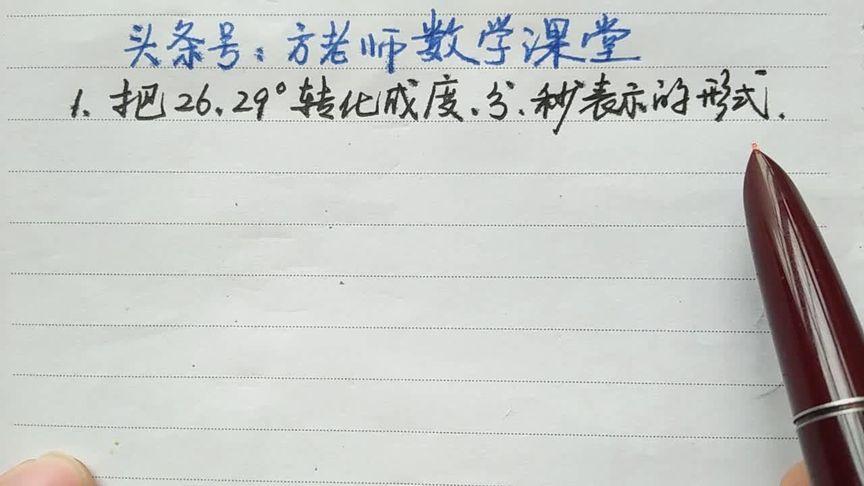 头条号：方老师数学课堂
1. 把26.29°转化成度、分、秒表示的形式.